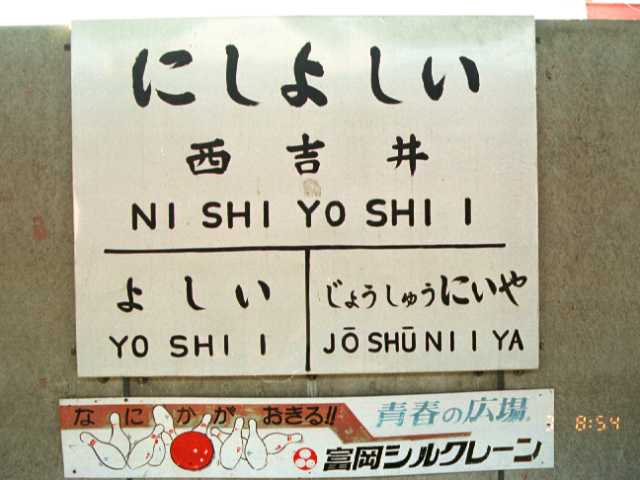 にしよしい
西吉井
NISHI YOSHII
よしい
YOSHII
じょうしゅうにいや
JŌSHŪNIIYA
なにかがおきる!!
青春の広場
富岡シルクレーン
8:54